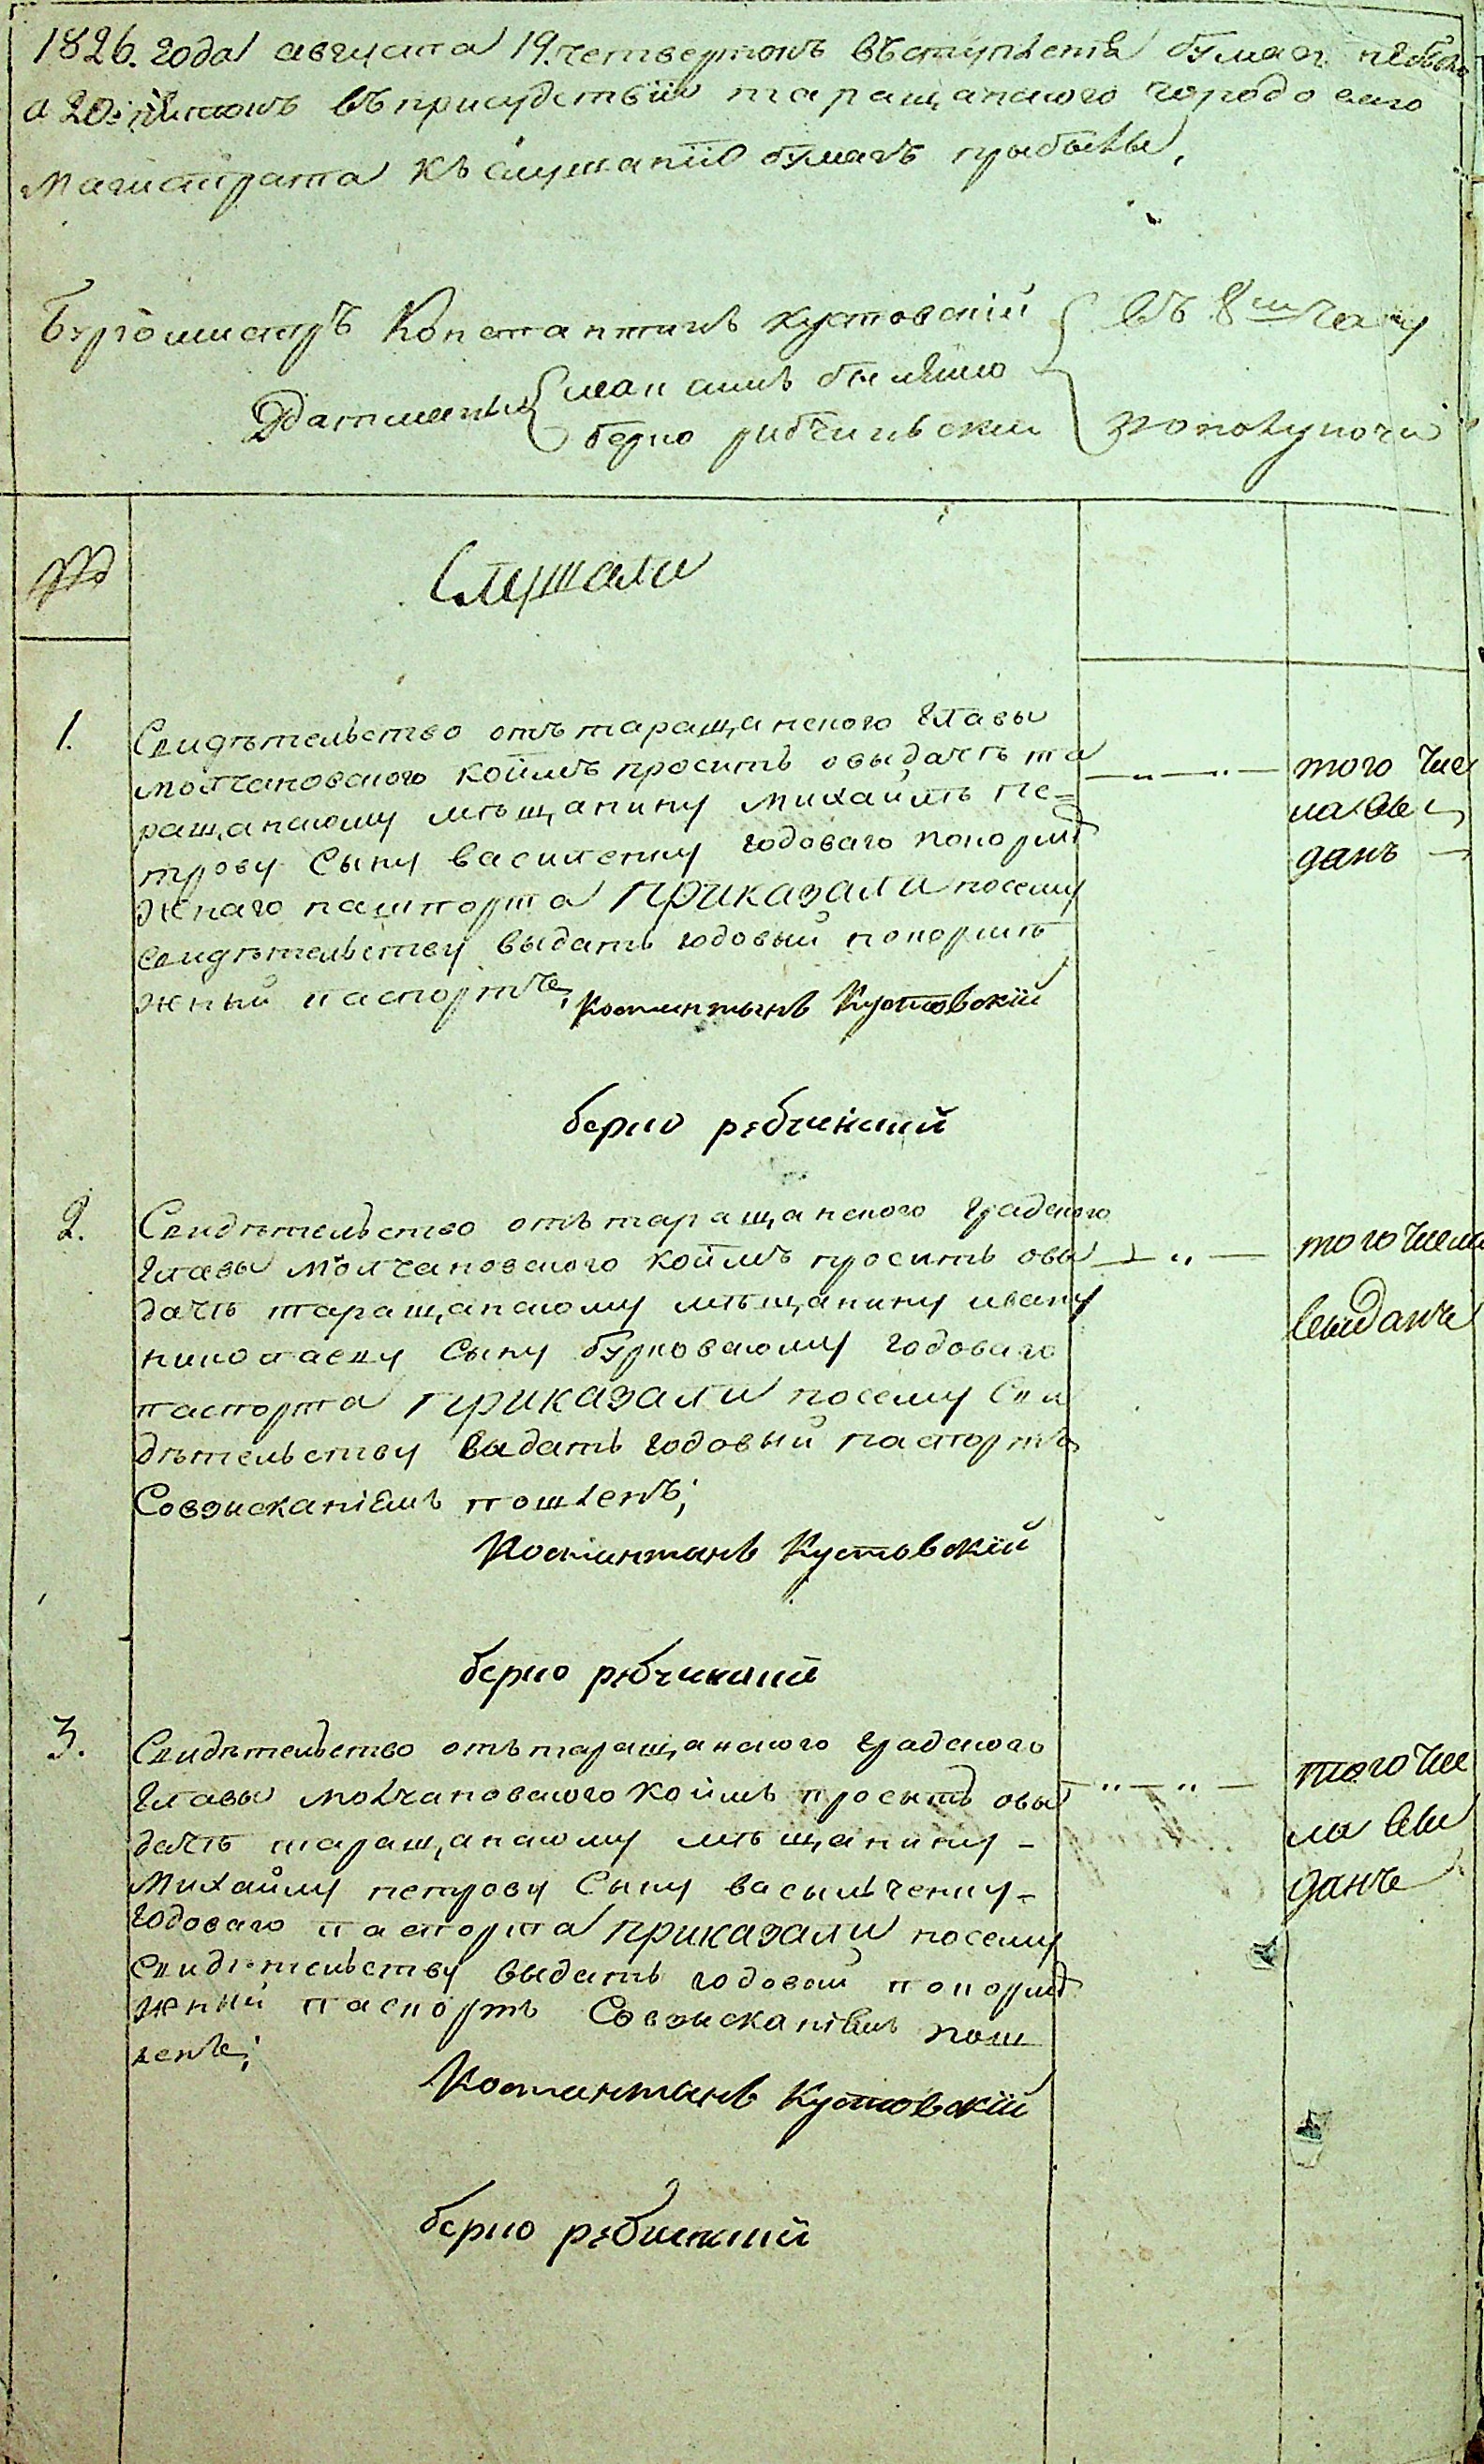 1826. года августа 19. четвертокъ въступлетя бумаг небыло
а 20: пятокъ въ присудствїи таращанского городоваго
Магистрата къ слушанїю бумагъ прыбылы,
Бургомистръ Константинъ Кустовскїй
въ 8м часу
Ратманы
берко рибчинскии
пополуночи
№
Слушали
1.
Свидѣтельство отъ таращанского Главы
молчановского коимъ проситъ овыдачѣ та
ращанскому мѣщанину Михаилѣ Пе=
трову Сыну василенку годоваго покорме
жнаго пашпорта Приказали посему
свидѣтельству выдать годовый покормѣ
жный паспортъ,
Костинтынъ Кустовскїй
того чис
ла вы
данъ
берко рабчинский
2.
Свидѣтельство отъ таращанского градского
Главы Молчановского коимъ проситъ овы
дачѣ таращанскому мѣщанину ивану
николаеву Сыну бурковскому годоваго
паспорта Приказали посему Сви
дѣтельству выдать годовый паспортъ
Совзысканіемъ пошленъ;
Костинтинъ Кустовскїй
того числа
выданъ
берко рабчинский
3.
Свидѣтельство отъ таращанского градского
Главы молчановского коимъ проситъ овы
дачѣ таращанскому мѣщанину -
Михайлу петрову Сыну васильченку -
годоваго паспорта Приказали посему
Свидѣтельству выдать годовой покорме
жный паспортъ Совзысканіемъ пош
ленъ;
Костинтинъ Кустовскїй
того чис
ла вы
данъ
берко рабчинский